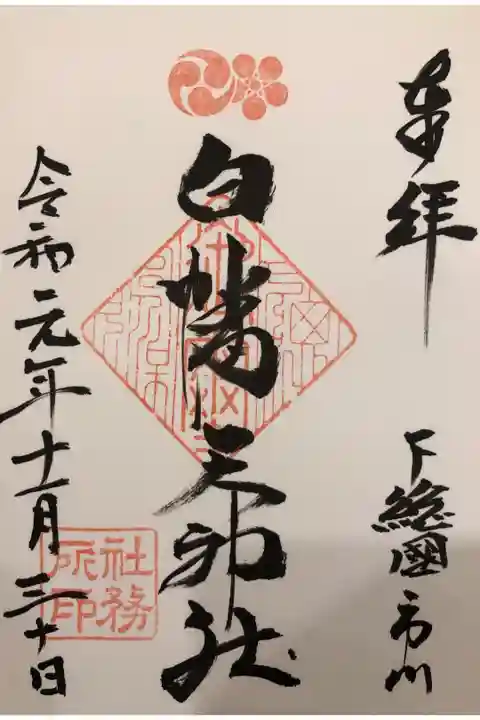 奉拝
下總國市川
白幡天神社
令和元年十一月三十日
社務所印